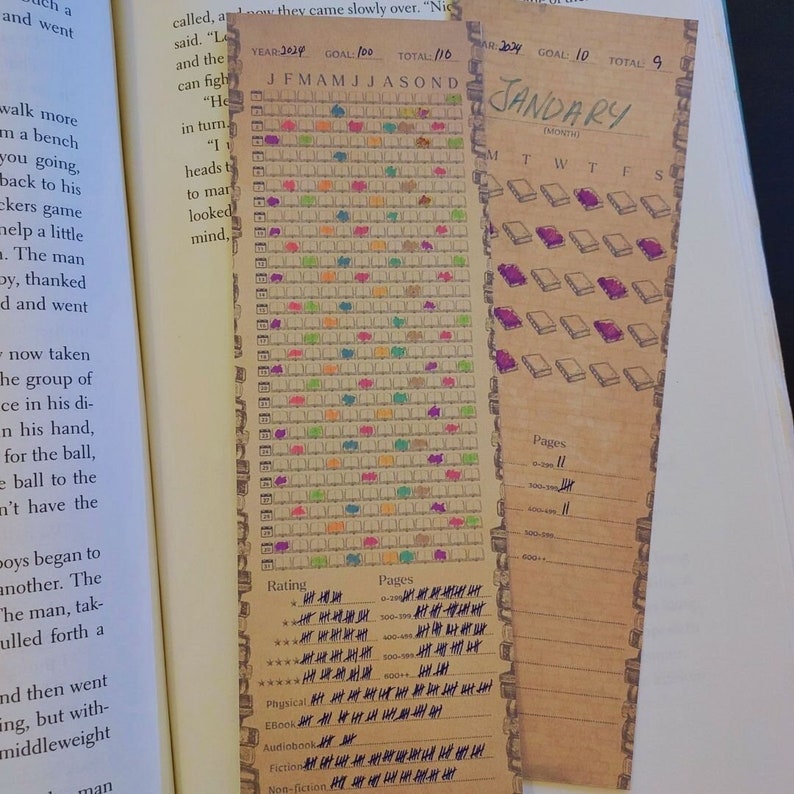 uch a
and went
walk more
m a bench
you going,
back to his
ckers game
help a little
n. The man
oy, thanked
d and went
y now taken
he group of
ce in his di-
n his hand,
for the ball,
e ball to the
n't have the
boys began to
another. The
The man, tak-
ulled forth a
nd then went
ing, but with-
middleweight
man
called, and now they came slowly over. "Nic
said. "Le
and the
can figh
"He
in turn.
"I u
heads t
to mar
looked
mind,
YEAR: 2024 GOAL: 100 TOTAL: 110
J F M A M J J A S O N D
1
2
3
4
5
6
7
8
9
10
11
12
13
14
15
16
17
18
19
20
21
22
23
24
25
26
27
28
29
30
31
Rating Pages
0-299
300-399
400-499
500-599
600++
Physical
EBook
Audiobook
Fiction
Non-fiction
AR: 2024 GOAL: 10 TOTAL: 9
JANUARY
(MONTH)
M T W T F S
Pages
0-299
300-399
400-499
500-599
600++